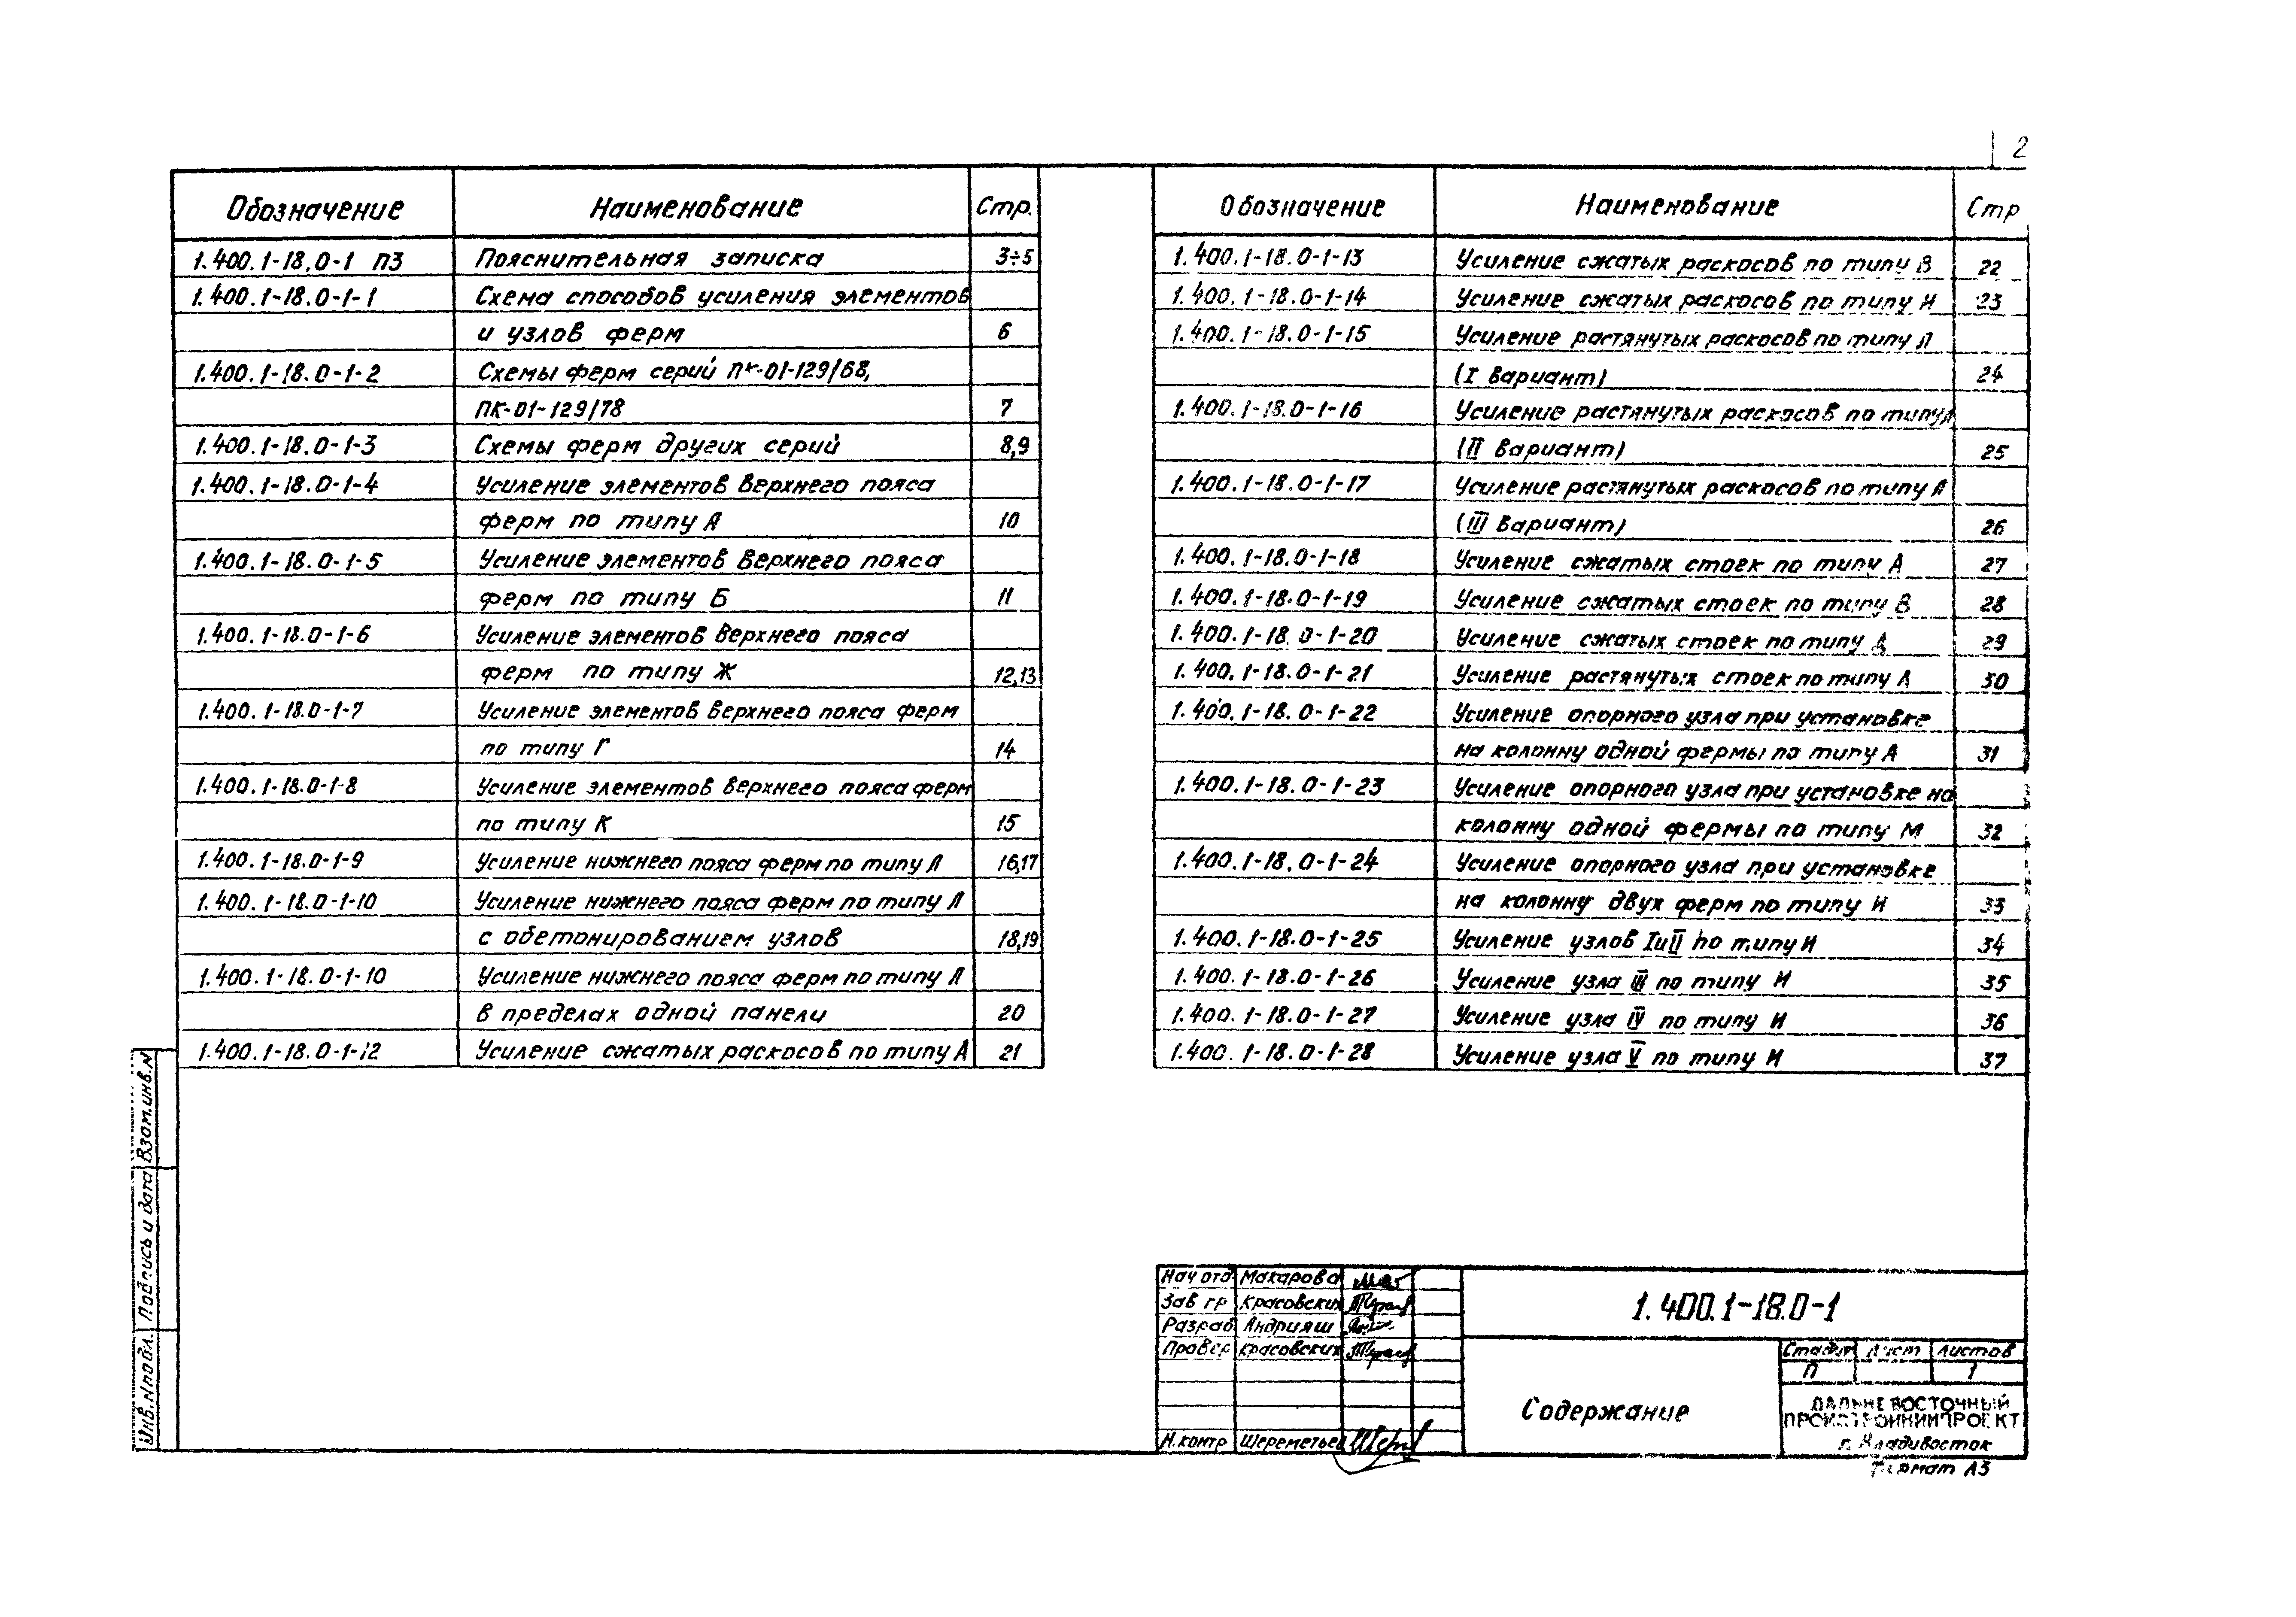 2
Обозначение Наименование Стр.
1.400.1-18.0-1 ПЗ Пояснительная записка 3÷5
1.400.1-18.0-1-1 Схема способов усиления элементов
и узлов ферм 6
1.400.1-18.0-1-2 Схемы ферм серий ПК-01-129/68,
ПК-01-129/78 7
1.400.1-18.0-1-3 Схемы ферм других серий 8,9
1.400.1-18.0-1-4 Усиление элементов верхнего пояса
ферм по типу А 10
1.400.1-18.0-1-5 Усиление элементов верхнего пояса
ферм по типу Б 11
1.400.1-18.0-1-6 Усиление элементов верхнего пояса
ферм по типу Ж 12,13
1.400.1-18.0-1-7 Усиление элементов верхнего пояса ферм
по типу Г 14
1.400.1-18.0-1-8 Усиление элементов верхнего пояса ферм
по типу К 15
1.400.1-18.0-1-9 Усиление нижнего пояса ферм по типу Л 16,17
1.400.1-18.0-1-10 Усиление нижнего пояса ферм по типу Л
с обетонированием узлов 18,19
1.400.1-18.0-1-10 Усиление нижнего пояса ферм по типу Л
в пределах одной панели 20
1.400.1-18.0-1-12 Усиление сжатых раскосов по типу А 21
Обозначение Наименование Стр
1.400.1-18.0-1-13 Усиление сжатых раскосов по типу В 22
1.400.1-18.0-1-14 Усиление сжатых раскосов по типу И 23
1.400.1-18.0-1-15 Усиление растянутых раскосов по типу Л
(I вариант) 24
1.400.1-18.0-1-16 Усиление растянутых раскосов по типу
(II вариант) 25
1.400.1-18.0-1-17 Усиление растянутых раскосов по типу Л
(III вариант) 26
1.400.1-18.0-1-18 Усиление сжатых стоек по типу А 27
1.400.1-18.0-1-19 Усиление сжатых стоек по типу В 28
1.400.1-18.0-1-20 Усиление сжатых стоек по типу Д 29
1.400.1-18.0-1-21 Усиление растянутых стоек по типу Л 30
1.400.1-18.0-1-22 Усиление опорного узла при установке
на колонну одной фермы по типу А 31
1.400.1-18.0-1-23 Усиление опорного узла при установке на
колонну одной фермы по типу М 32
1.400.1-18.0-1-24 Усиление опорного узла при установке
на колонну двух ферм по типу И 33
1.400.1-18.0-1-25 Усиление узлов I и II по типу И 34
1.400.1-18.0-1-26 Усиление узла III по типу И 35
1.400.1-18.0-1-27 Усиление узла IV по типу И 36
1.400.1-18.0-1-28 Усиление узла V по типу И 37
Взам.инв.N
Подпись и дата
Инв.Nподл.
Нач отд Макарова
Зав гр Красовских
Разраб. Андрияш
Провер Красовских
Н.контр Шереметьев
1.400.1-18.0-1
Содержание
Стадия Лист Листов
П 1
ДАЛЬНЕВОСТОЧНЫЙ
ПРОМСТРОЙНИИПРОЕКТ
г. Владивосток
Формат А3